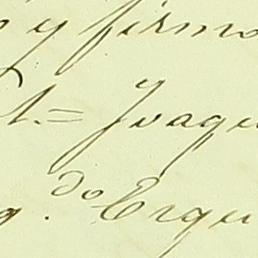 y firmo
t.= Joaqu
g.do Erqui